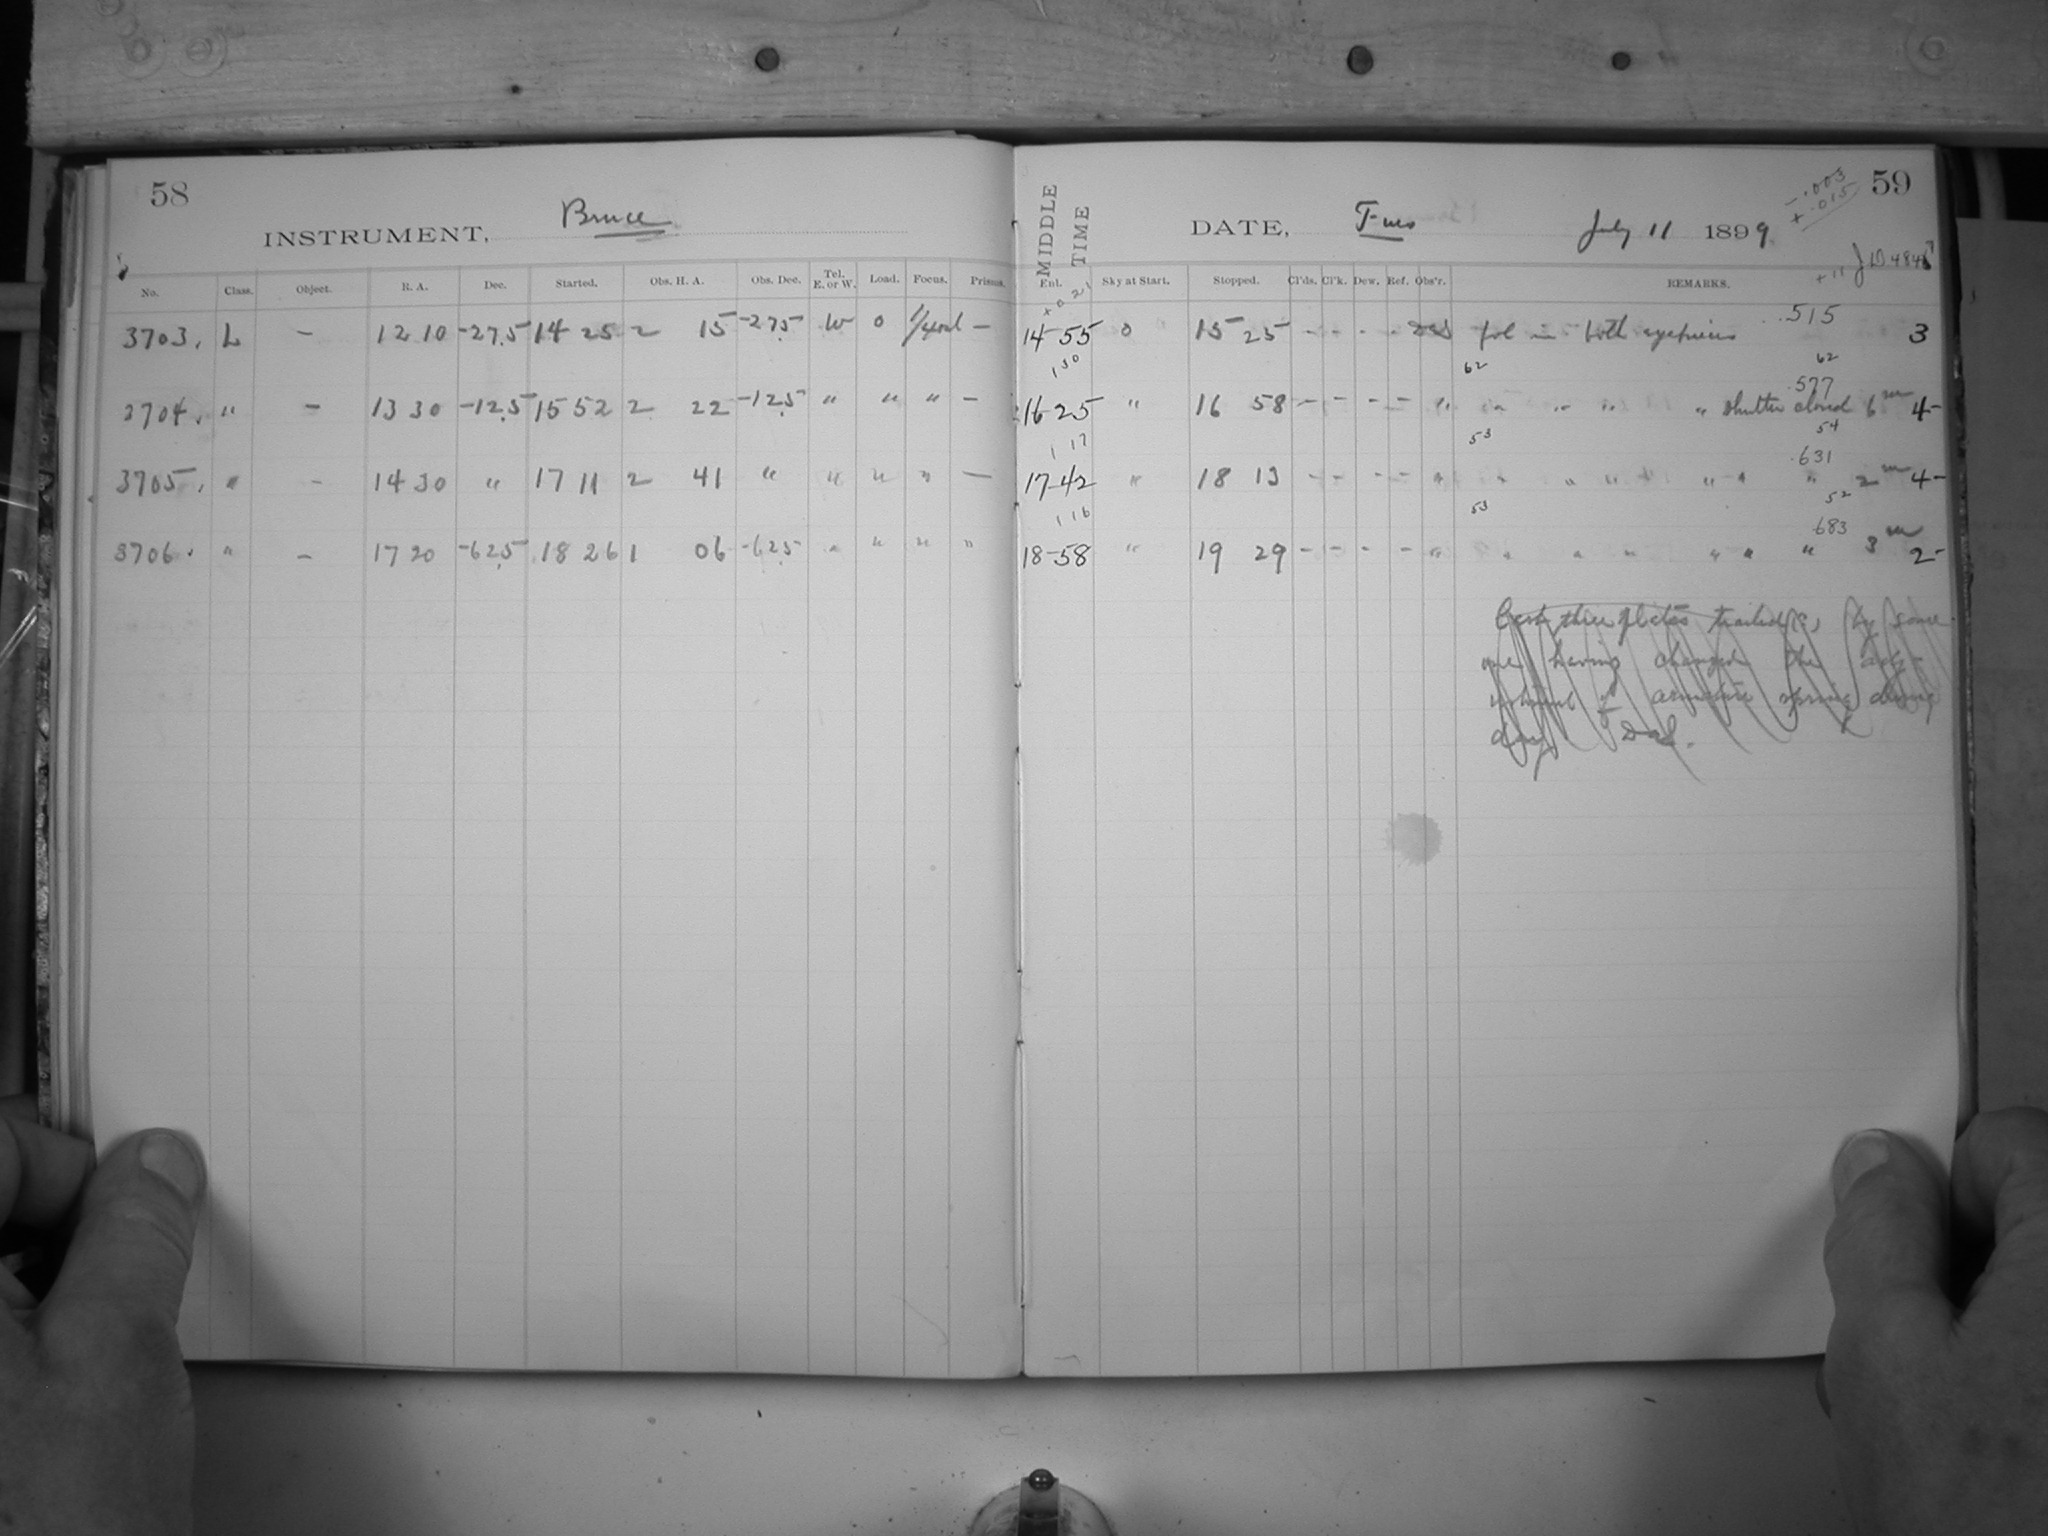 58
INSTRUMENT, Bruce
No. Class. Object. R. A. Dec. Started. Obs. H. A. Obs. Dec. Tel. E. or W. Load. Focus. Prisms.
3703. L – 12 10 -27.5 14 25 2 15 -27.5 W 0 –
3704. " – 13 30 -12.5 15 52 2 22 -12.5 " " " –
3705. " – 14 30 " 17 11 2 41 " " " " –
3706. " – 17 20 -62.5 18 26 1 06 -62.5 " " " "
59
-.003
+.015
MIDDLE TIME
DATE, Tues July 11 1899
+11 JD 484
Ent. Sky at Start. Stopped. Cl'ds. Cl'k. Dew. Ref. Obs'r. REMARKS.
+0 21
.515
14-55 0 15 25 - - - - fol in both eyepieces 3
1 30 62 62
.577
16-25 " 16 58 - - - - " " " " " shutter closed 6m 4-
1 17 53 54
.631
17-42 " 18 13 - - - - " " " " " " " 2m 4-
1 16 53 52
.683
18-58 " 19 29 - - - - " " " " " " " 3m 2-
Last three plates trailed (?) by some
one having changed the adj-
ustment of armature spring during
day.